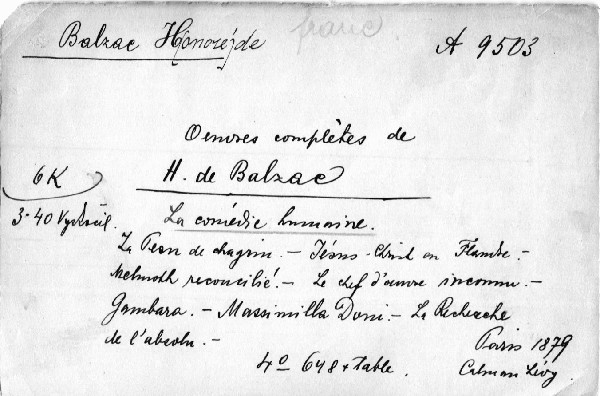 Balzac Honoré de
franc.
A 9503
Oeuvres complètes de
H. de Balzac
6K
La comédie humaine.
La Peau de chagrin. — Jésus-Christ en Flandre. —
Melmoth reconcilié. — Le chef d'œuvre inconnu. —
Gambara. — Massimilla Doni. — La Recherche
de l'absolu. —
Paris 1879
4° 648 + table.
Calman Lévy